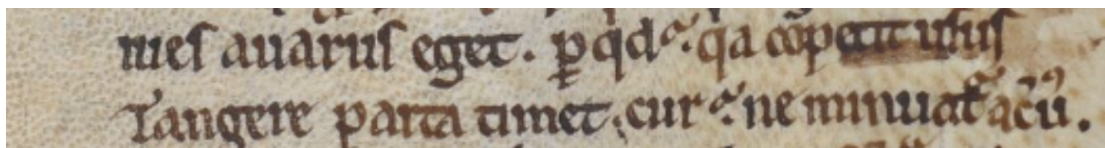 mes auarus eget. ꝑ qđ ᷣ: q̇a cōpetit usus
Tangere parta timet. cur ᷣ: ne minuat᷑ ac̄u᷒.